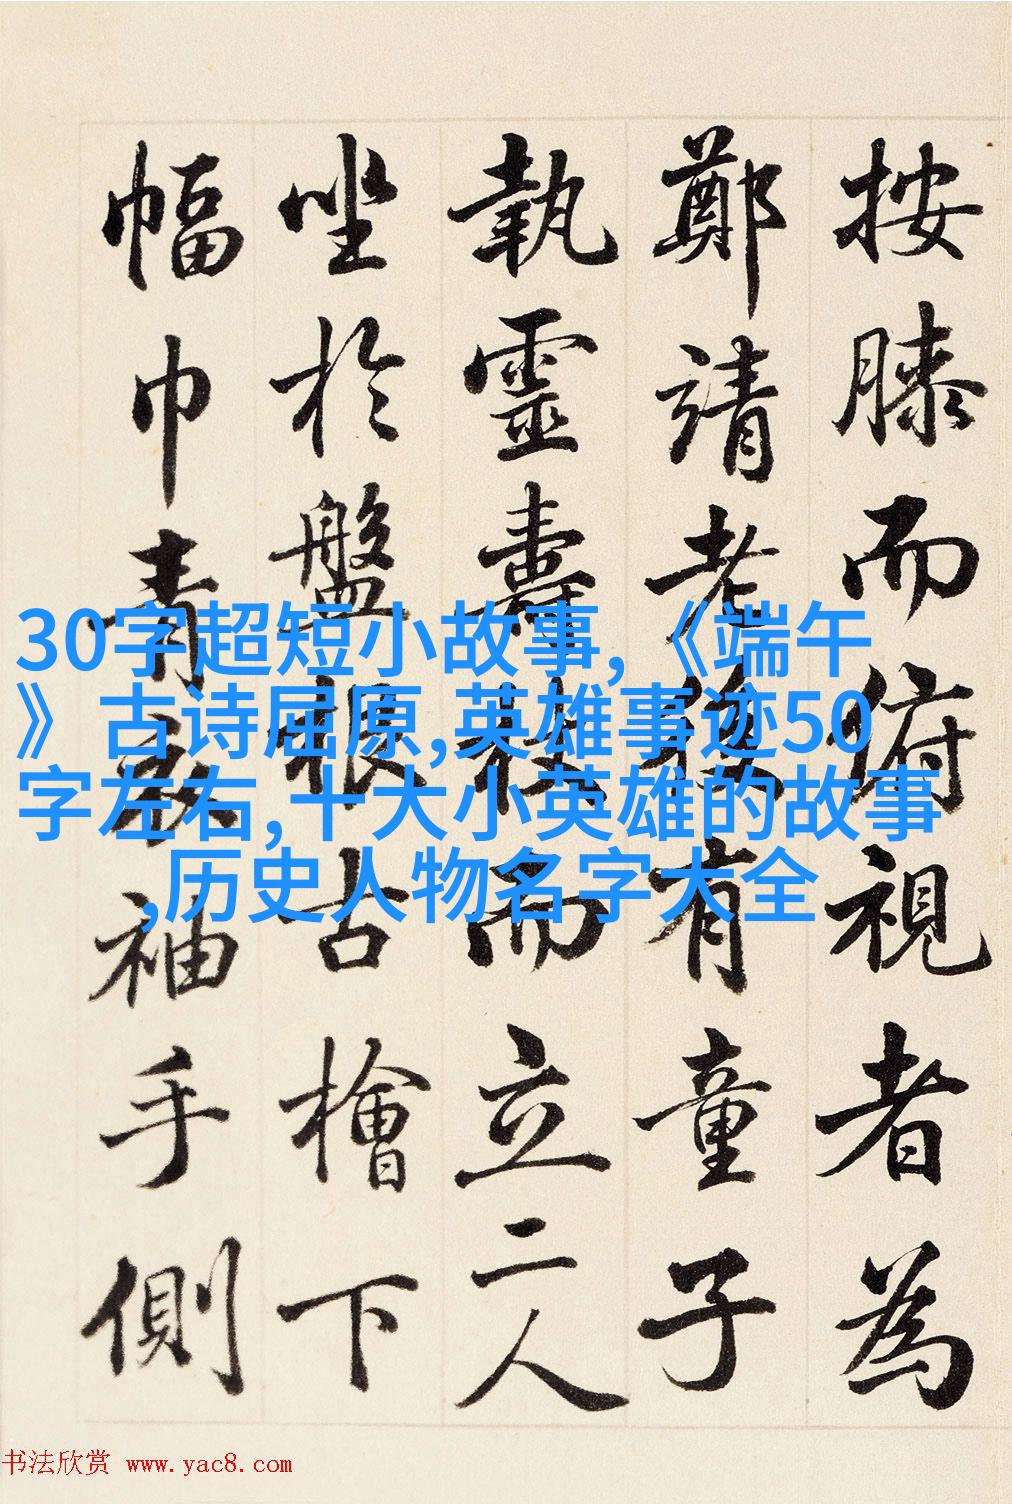 按膝而俯視者為
鄭靖老後有童子
執靈壽杖而立二人
坐於盤根古檜下
幅巾青衣袖手側
30字超短小故事,《端午
》古诗屈原,英雄事迹50
字左右,十大小英雄的故事
,历史人物名字大全
书法欣赏 www.yac8.com